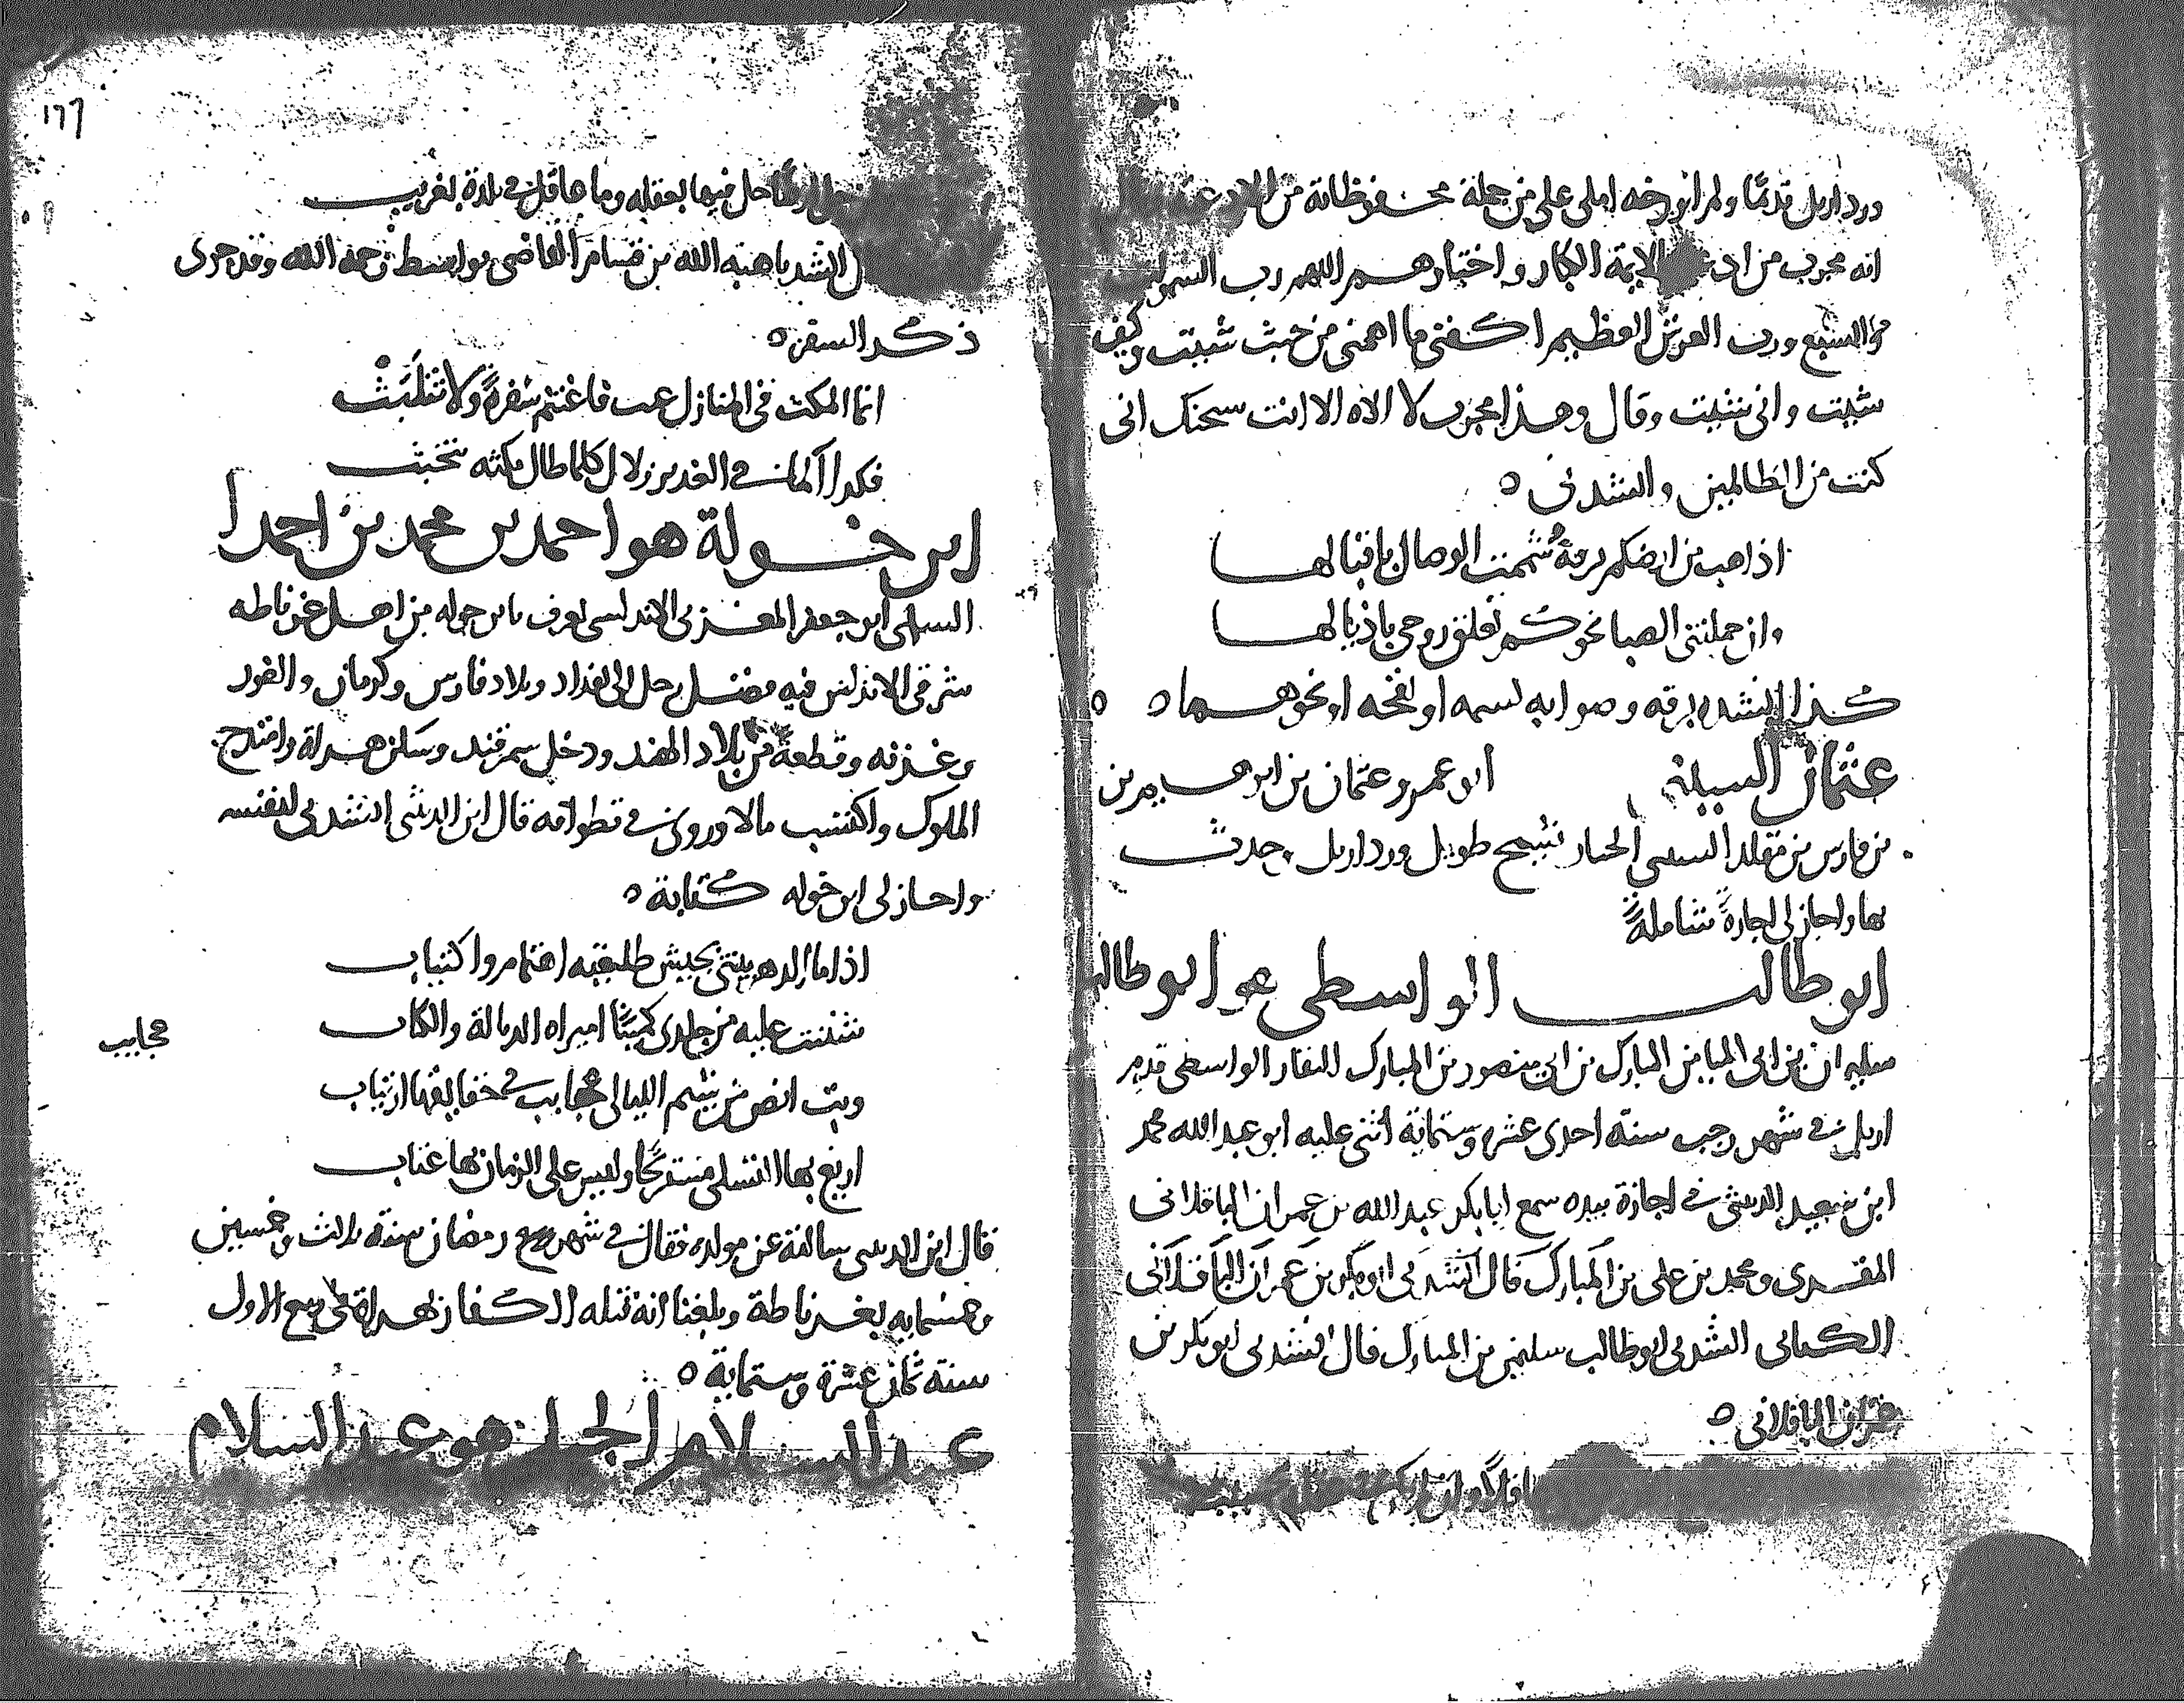 ورد اربل قديمًا ولم اورخه املى علي من جملة محفوظاته من الادعية
انه مجرب من الايمة الكبار واختيارهم اللهم رب السموات
السبع ورب العرش العظيم اكفني ما اهمني من حيث شيت وكيف
شيت واني شيت وقال وهذا مجرب لا الاه الا انت سبحنك اني
كنت من الظالمين وانشدني ه
اذا هب من ارضكم برقة شممت الوصال باقبالها
وان حملتني الصبا نحوكم تعلق روحي باذيالها
كذا انشده برقه وصوابه نسمه او نفحه او نحوهما ه ه
عثمان ابو عمرو عثمان بن ابرهيم بن
بن فارس بن مقلد الخباز شيخ طويل ورد اربل وحدث
بها واجاز لي اجازة شاملة
ابو طالب الواسطي هو ابو طالب
سليمان بن ابي المبارك بن ابي منصور بن المبارك الواسطي قدم
اربل في شهر رجب سنة احدى عشرة وستماية اثنى عليه ابو عبد الله محمد
ابن سعيد الدبيثي في اجازة بيده سمع ابا بكر عبد الله بن عمران الباقلاني
المقري ومحمد بن علي بن المبارك قال انشدني ابو بكر بن عمران الباقلاني
انشدني ابو طالب سليمن بن المبارك قال انشدني ابو بكر بن
عمران الباقلاني ه
١٦٦
حل فيها بعقله وما عاقل في بلدة بغريب
انشدنا هبة الله بن قسام القاضي بواسط رحمه الله وقد جرى
ذكر السفر ه
انما المكث في المنازل عب فاغتنم سفرةً ولا تتلبث
فكذا الماء في الغدير زلال كلما طال مكثه يتخبث
ابن خولة هو احمد بن محمد بن احمد
السلمي ابو جعفر المغربي الاندلسي يعرف بابن خوله من اهل غرناطه
شرقي الاندلس فيه فضل رحل الى بغداد وبلاد فارس وكرمان والغور
وغزنه وقطعة من بلاد الهند ودخل سمرقند وسكن هراة وامتدح
الملوك واكتسب مالا وروى في تطوافه قال ابن الدبيثي انشدني لنفسه
واجاز لي ابن خوله كتابة ه
اذا ما الدهر بيتني بجيش طليعته اهتمام واكتياب
شننت عليه من جلدي كميتًا اميراه الذبالة والكتاب
وبت انص من شيم الليالي عجايب في حقايقها ارتياب
عجايب
اريغ بها التسلي مستريحًا وليس على الزمان بها عتاب
قال ابن الدبيثي سالته عن مولده فقال في شهر رمضان سنة ثلاث وخمسين
وخمسمايه بغرناطة وبلغنا انه قتله الكفار بهراة في ربيع الاول
سنة ثمان عشرة وستماية ه
عبد السلام هو عبد السلام